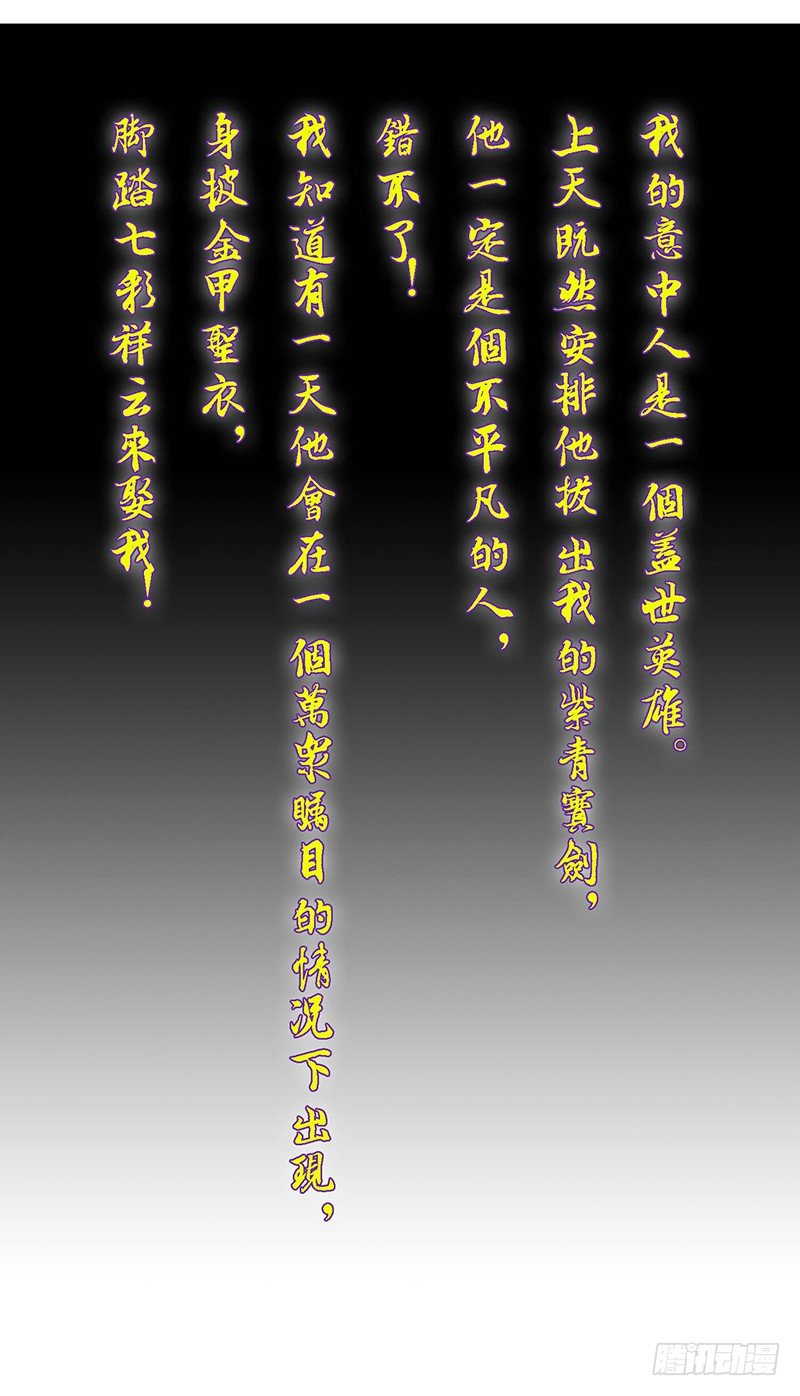 我的意中人是一個蓋世英雄。
上天既然安排他拔出我的紫青寶劍，
他一定是個不平凡的人，
錯不了！
我知道有一天他會在一個萬眾矚目的情況下出現，
身披金甲聖衣，
脚踏七彩祥云來娶我！
腾讯动漫